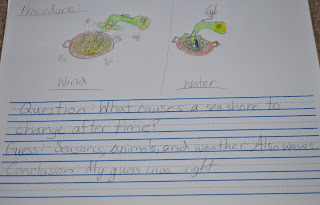 Procedure:
Wind
Water
Question: What causes a seashore to
change after time?
Guess: Seasons, Animals, and weather Also waves.
Conclusion: My guess was right.